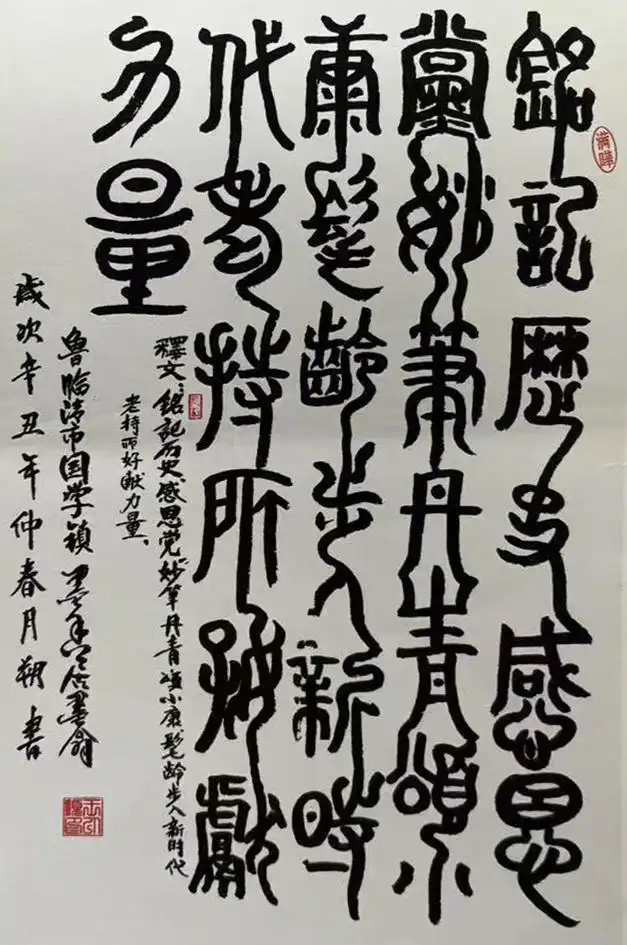 銘記歷史感恩
黨妙筆丹青頌小
康髦齡步入新時
代老持所好獻
力量
釋文：銘記历史感恩党妙筆丹青頌小康髦齡步入新時代
老持所好献力量、
魯臨清市国学鎮
歲次辛丑年仲春月朔書